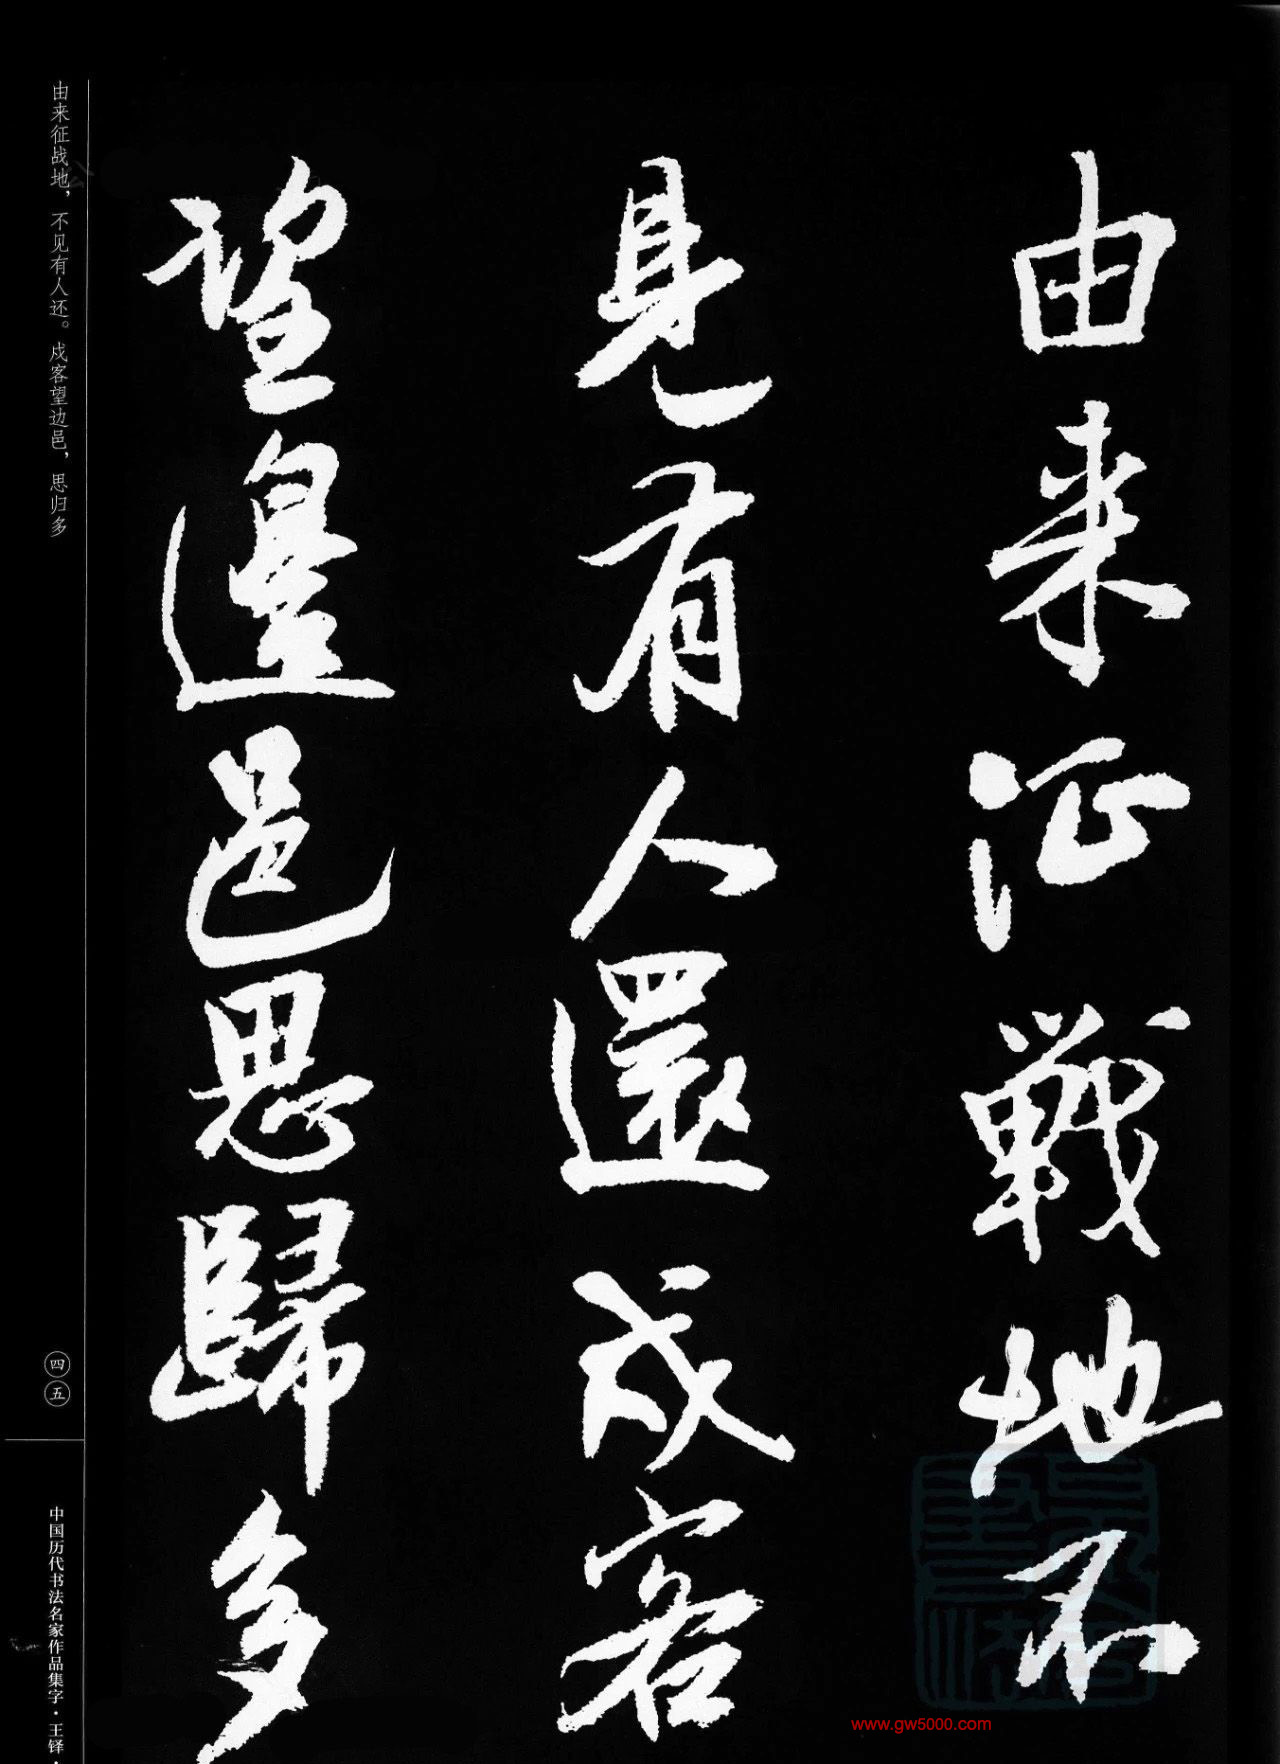 由来征戰地不
見有人還戍客
望邊邑思歸多
由来征战地，不见有人还。戍客望边邑，思归多
四五
中国历代书法名家作品集字·王铎·
www.gw5000.com